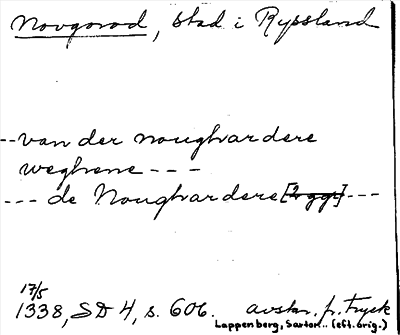 Novgorod, stad i Ryssland
--van der noughardere
weghene---
--- de Noughardere [2 ggr]---
17/5
1338, SD 4, s. 606. avskr. fr. tryck
Lappenberg, Sartori.. (eft. orig.)